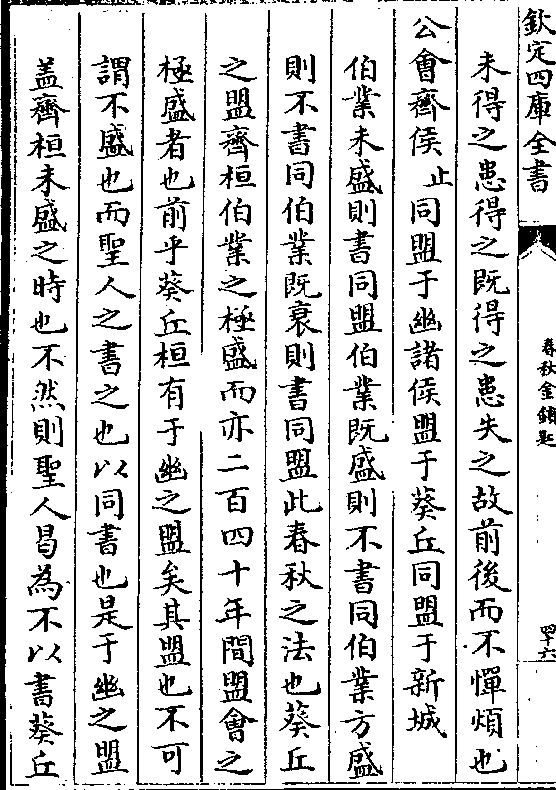 欽定四庫全書
春秋金鎖匙
四十六
未得之患得之既得之患失之故前後而不憚煩也
公會齊侯止同盟于幽諸侯盟于葵丘同盟于新城
伯業未盛則書同盟伯業既盛則不書同伯業方盛
則不書同伯業既衰則書同盟此春秋之法也葵丘
之盟齊桓伯業之極盛而亦二百四十年間盟會之
極盛者也前乎葵丘桓有于幽之盟矣其盟也不可
謂不盛也而聖人之書之也以同書也是于幽之盟
盖齊桓未盛之時也不然則聖人曷為不以書葵丘